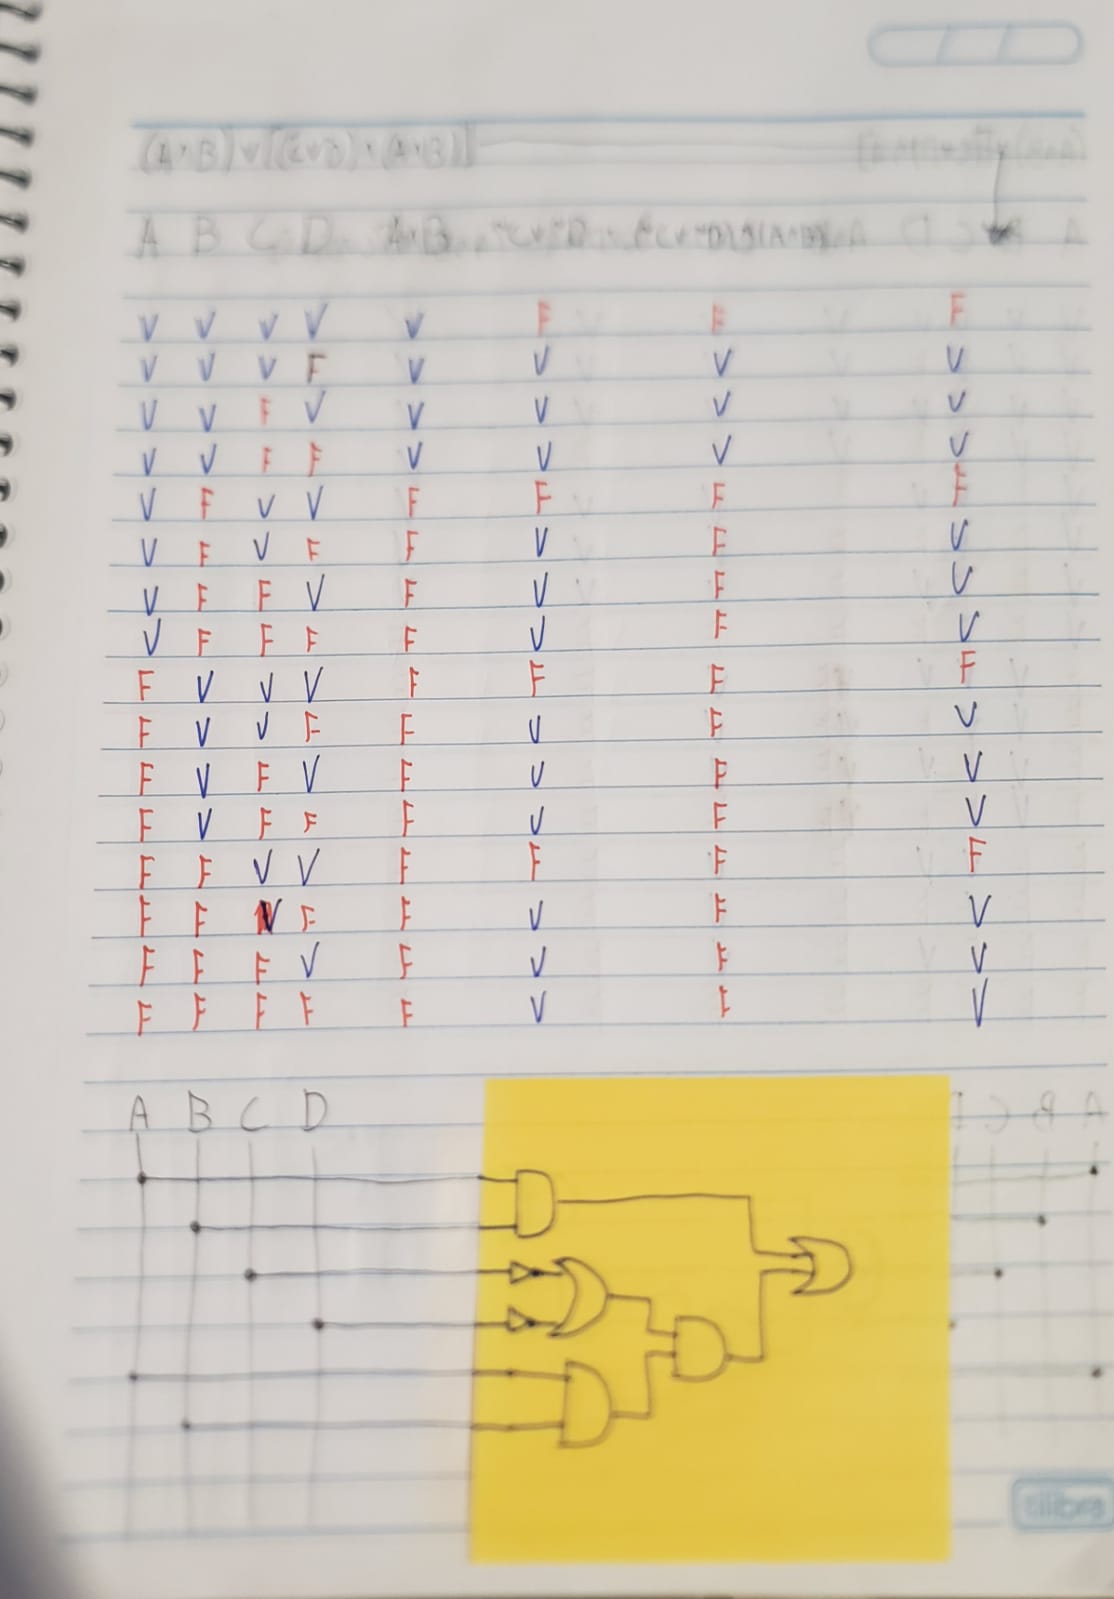 A B C D A^B
V V V V V F F F
V V V F V V V V
V V F V V V V V
V V F F V V V V
V F V V F F F F
V F V F F V F V
V F F V F V F V
V F F F F V F V
F V V V F F F F
F V V F F V F V
F V F V F V F V
F V F F F V F V
F F V V F F F F
F F V F F V F V
F F F V F V F V
F F F F F V F V
A B C D
tilibra